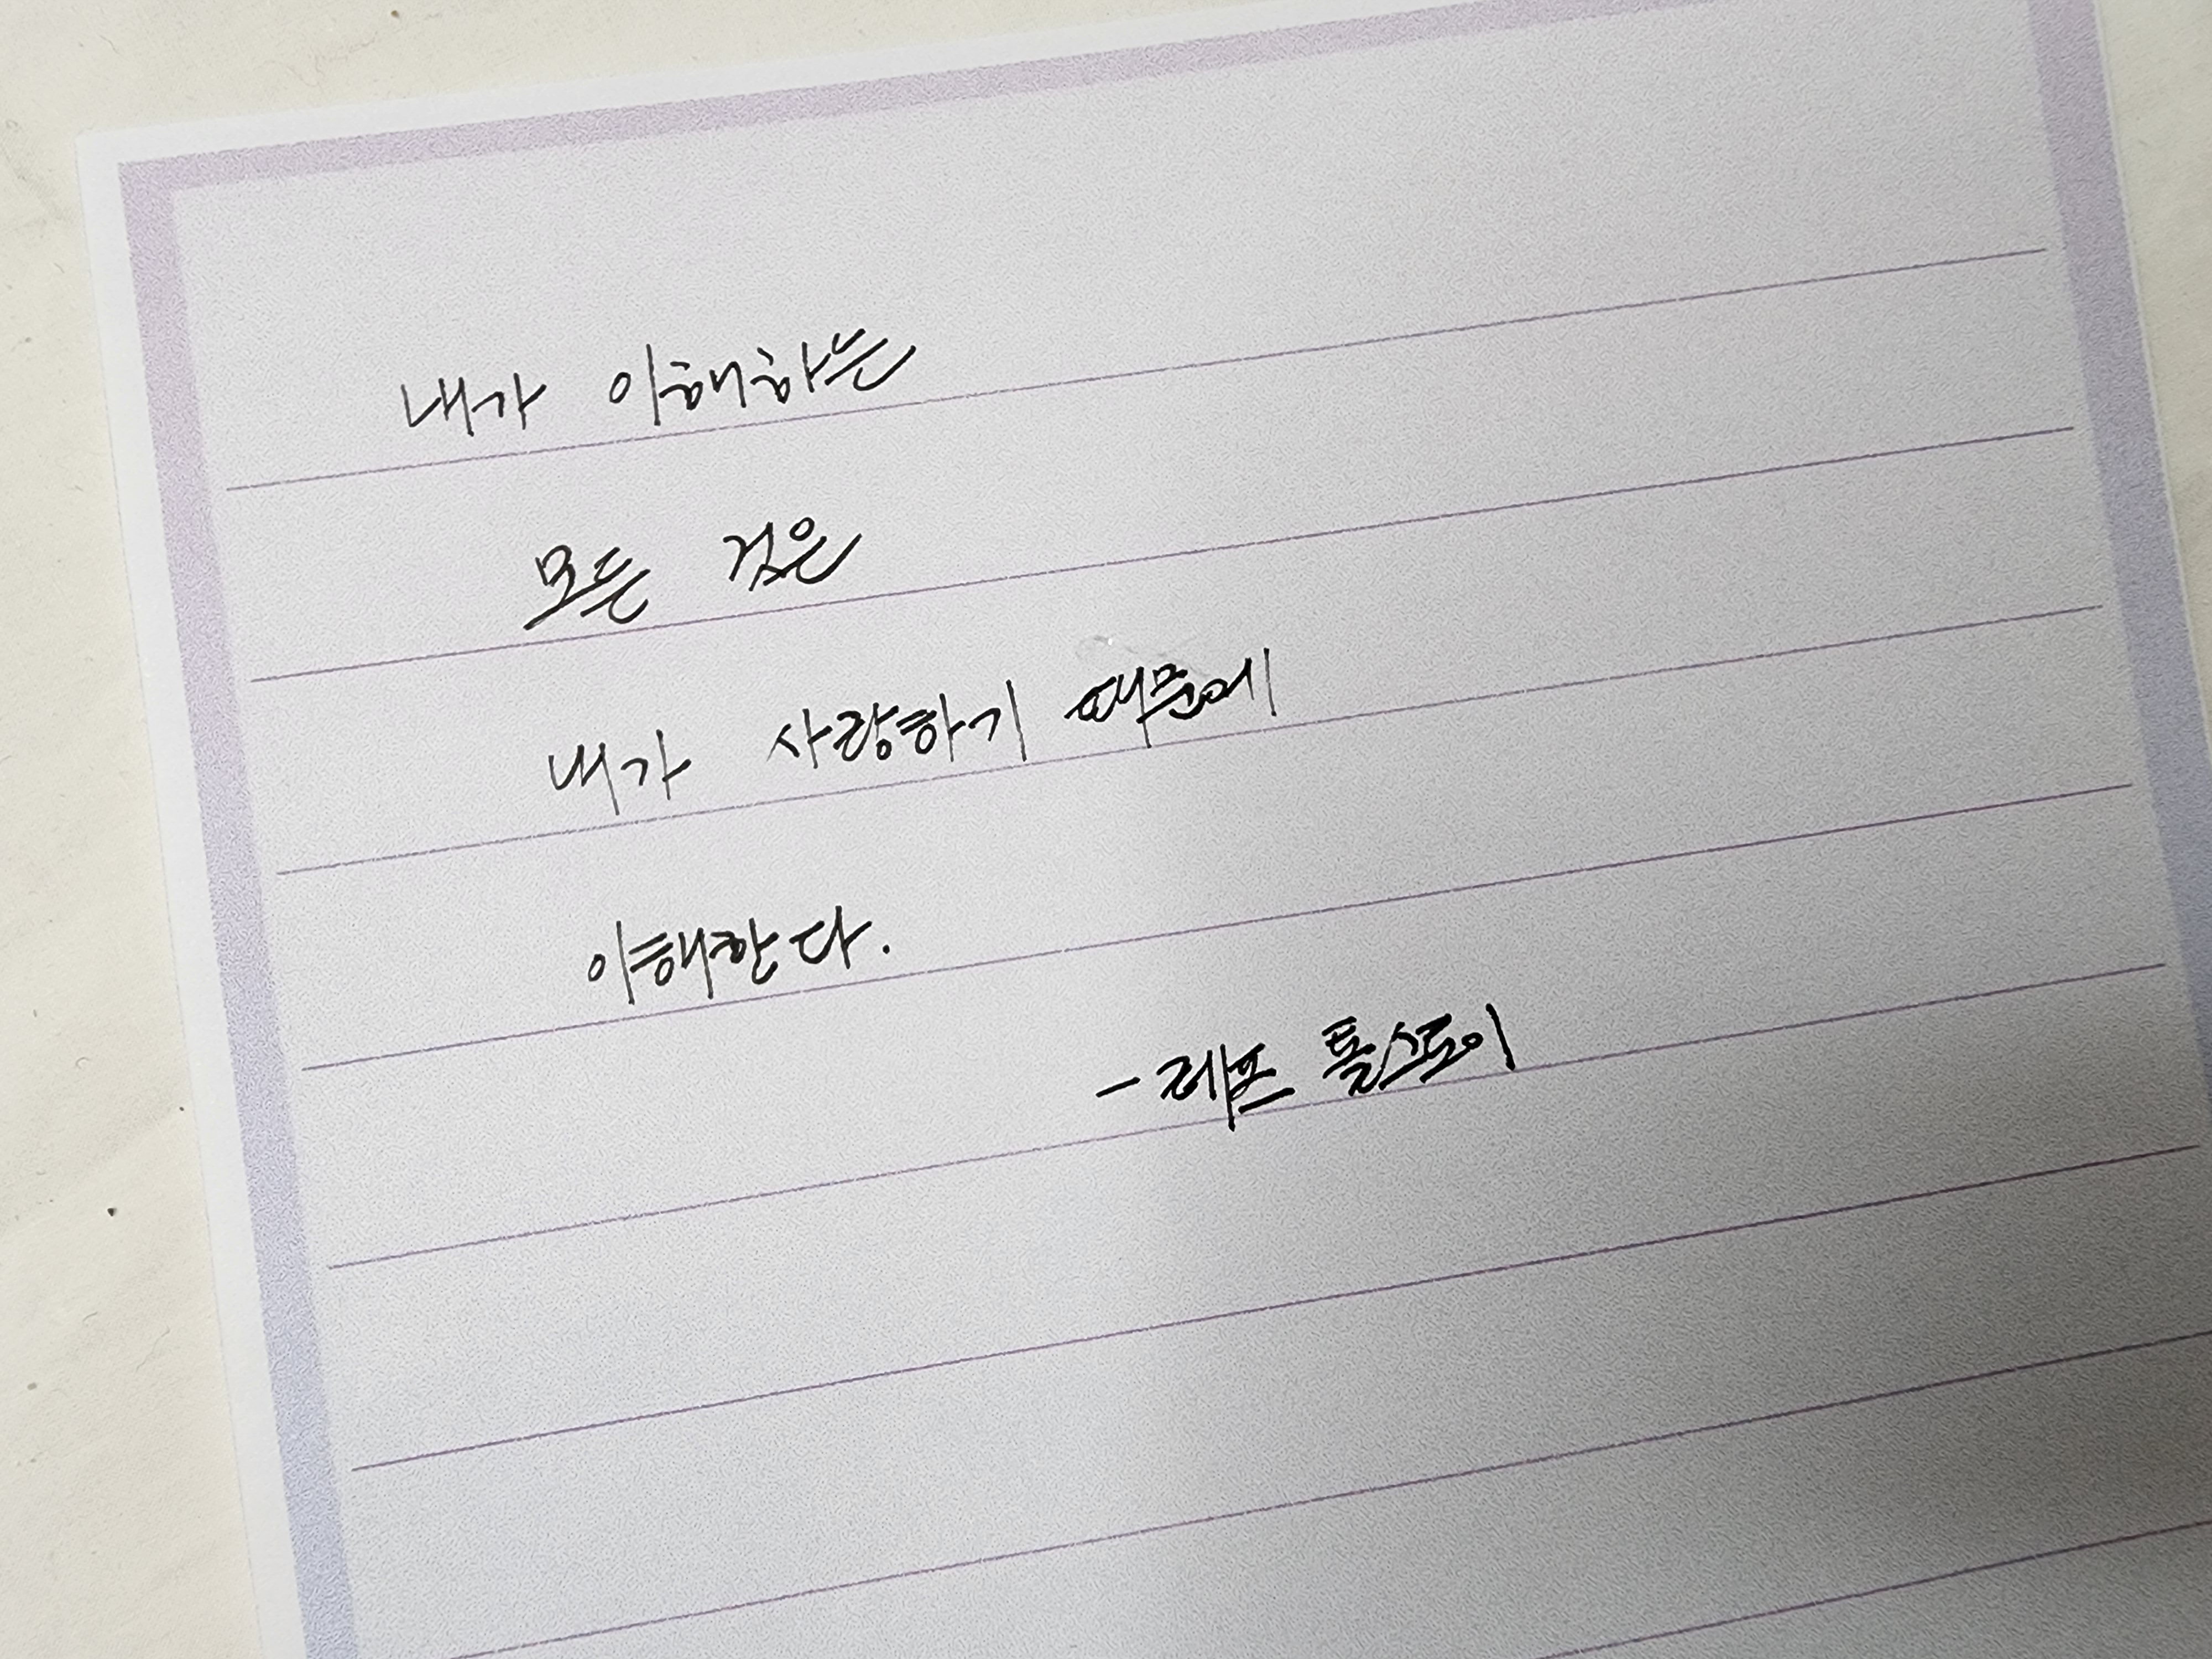 내가 이해하는
모든 것은
내가 사랑하기 때문에
이해한다.
- 레프 톨스토이